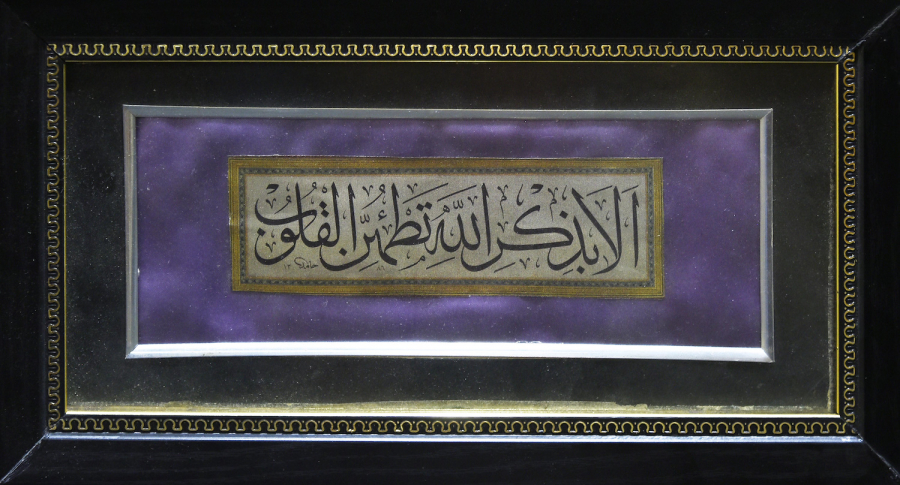 أَلَا بِذِكْرِ اللَّهِ تَطْمَئِنُّ الْقُلُوبُ
حامد